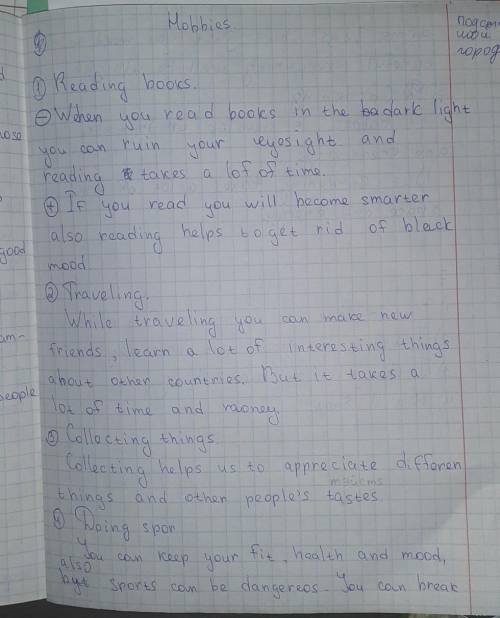 Hobbies.
① Reading books.
⊖ When you read books in the dark light
you can ruin your eyesight and
reading takes a lof of time.
⊕ If you read you will become smarter
also reading helps to get rid of black
mood
② Traveling.
While traveling you can make new
friends, learn a lot of interesting things
about other countries. But it takes a
lot of time and money
③ Collecting things
Collecting helps us to appreciate differen
things and other people's tastes.
④ Doing spor
You can keep your fit, health and mood,
also
byt sports can be dangereos. You can break
город
good
people